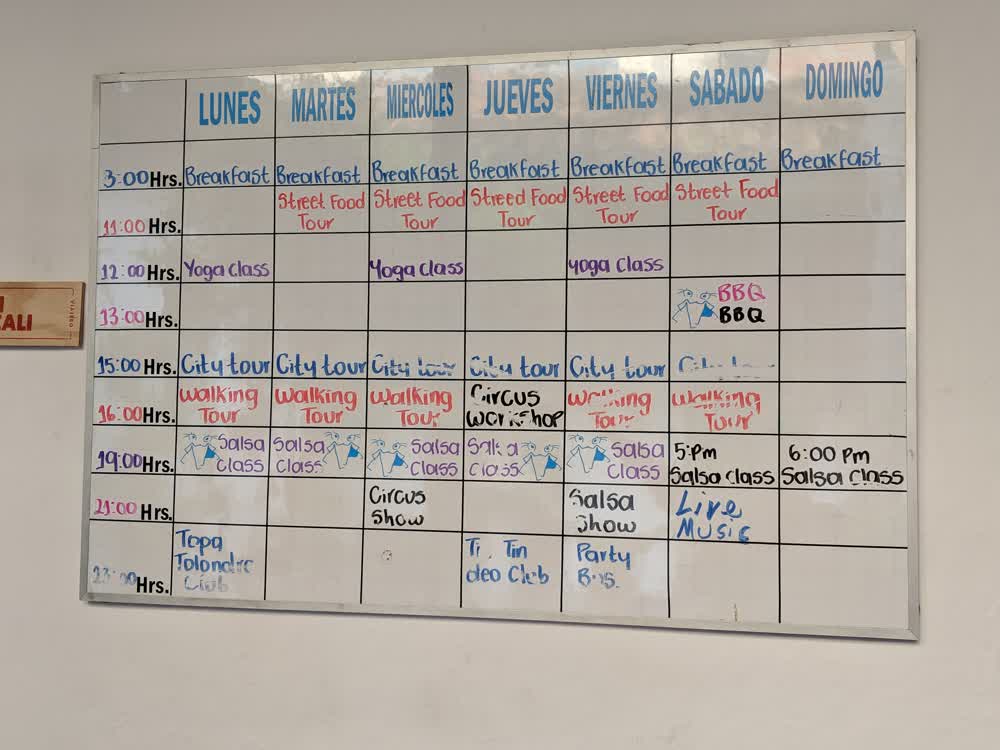 LUNES MARTES MIERCOLES JUEVES VIERNES SABADO DOMINGO
3:00 Hrs. Breakfast Breakfast Breakfast Breakfast Breakfast Breakfast Breakfast
11:00 Hrs. Street Food Tour Street Food Tour Streed Food Tour Street Food Tour Street Food Tour
12:00 Hrs. Yoga Class Yoga Class yoga Class
13:00 Hrs. BBQ
BBQ
15:00 Hrs. City tour City tour City tour City tour City tour
16:00 Hrs. Walking Tour Walking Tour Walking Tour Circus Workshop Walking Tour Walking Tour
19:00 Hrs. Salsa Class Salsa Class Salsa Class Salsa Class Salsa Class 5:Pm Salsa Class 6:00 Pm Salsa Class
21:00 Hrs. Circus Show Salsa Show Live Music
23:00 Hrs. Topa Tolondra Club Tin deo Club Party Bus.
CALI